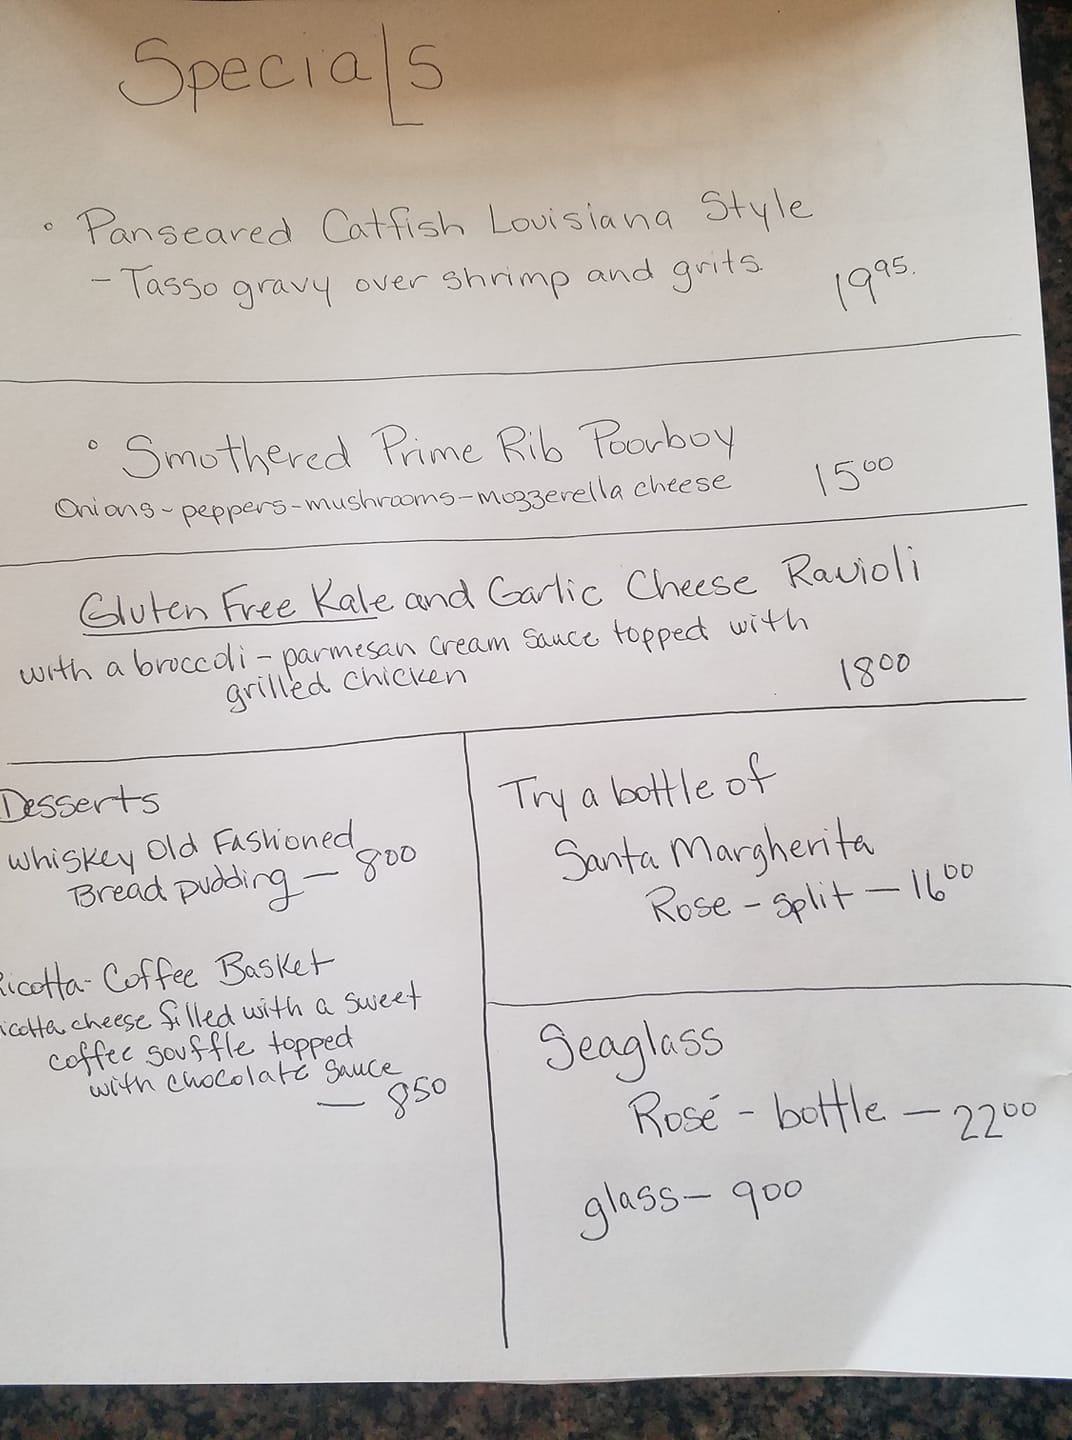 Specials
Panseared Catfish Louisiana Style
- Tasso gravy over shrimp and grits. 19 95.
Smothered Prime Rib Poorboy
Onions - peppers - mushrooms - mozzerella cheese 15 00
Gluten Free Kale and Garlic Cheese Ravioli
with a broccoli - parmesan cream sauce topped with
grilled chicken 18 00
Desserts
Whiskey Old Fashioned
Bread pudding — 800
Ricotta - Coffee Basket
icotta cheese filled with a sweet
coffee souffle topped
with chocolate sauce
— 850
Try a bottle of
Santa Margherita
Rose - split — 16 00
Seaglass
Rosé - bottle — 22 00
glass — 900